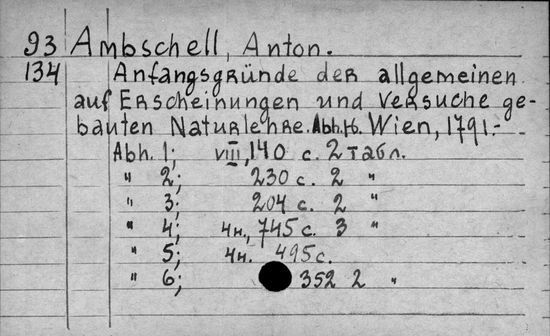 93 Ambschell, Anton.
134 Anfangsgründe der allgemeinen
auf Erscheinungen und Versuche ge-
bauten Naturlehre. Abh. 1-6. Wien, 1791.-
Abh. 1; VIII, 140 с. 2 табл.
" 2; 230 с. 2 "
" 3; 204 с. 2 "
" 4; 4н., 745 с. 3 "
" 5; 4н. 495 с.
" 6; 352 2 "